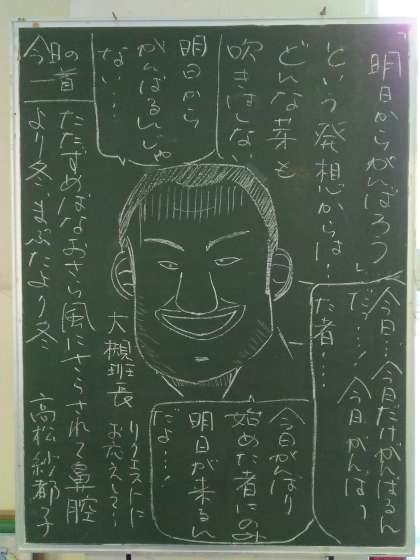 「明日からがんばろう」
という発想からは…
どんな菜も
吹きはしない
明日から
がんばるんじゃ
ない…
今日…今日だけがんばるん
だ…！ 今日がんばっ
た者…
今日がんばり
始めた者にのみ
明日が来るん
だよ…！
大槻班長
リクエストに
お応えして…
今日の
一首
たたずめばなおさら風にさらされて鼻腔
より冬、まぶたより冬 高松紗都子